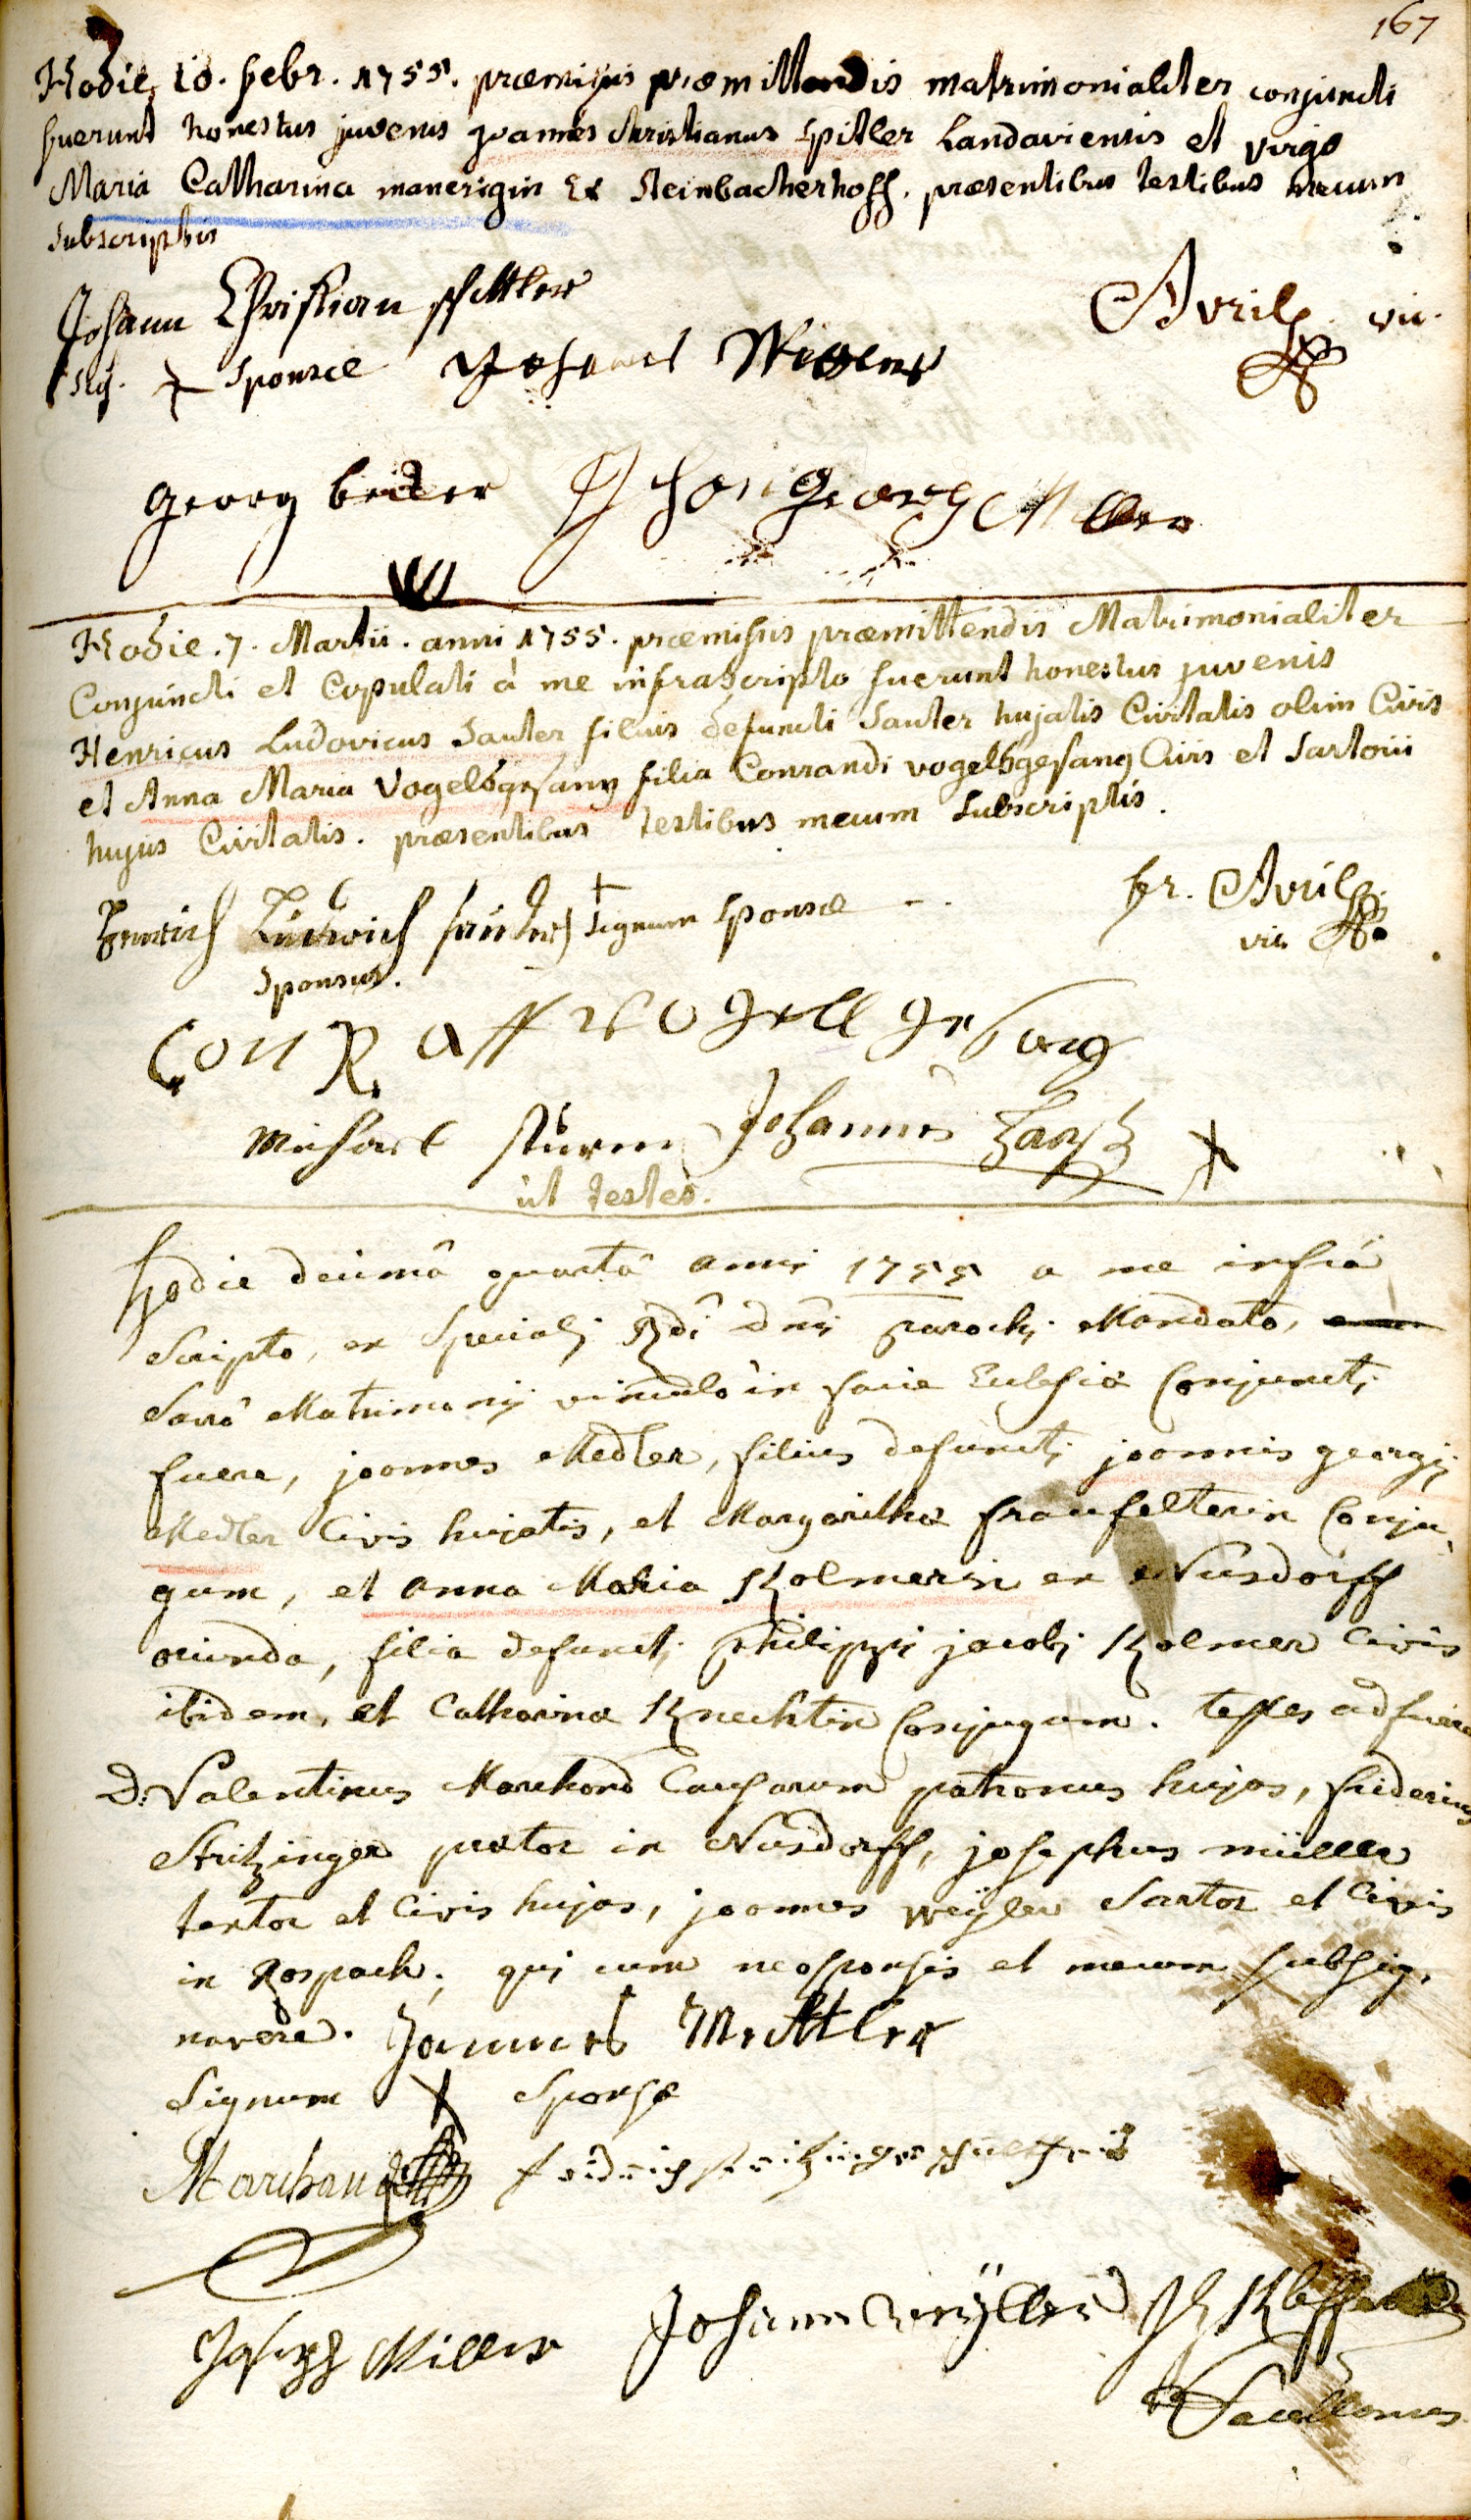 167
Hodie 10. febr. 1755. præmissis præmittendis matrimonialiter conjuncti
fuerunt honestus juvenis joannes christianus Spitler Landaviensis et virgo
Maria Catharina manerigin Ex Steinbacherhoff. præsentibus testibus mecum
subscriptis
Johann Christian
Avril vic.
sig. + sponsæ Johannes
georg becker georg
Hodie. 7. Martii. anni 1755. præmissis præmittendis Matrimonialiter
Conjuncti et Copulati à me infrascripto fuerunt honestus juvenis
Henricus Ludovicus Sauter filius defuncti Sauter hujatis Civitatis olim Civis
et Anna Maria Vogelsgesang filia Conrandi vogelsgesang Civis et Sartorii
hujus Civitatis. præsentibus testibus mecum Subscriptis.
Henrich Ludwich sauter + signum sponsæ
fr. Avril
vic.
sponsus.
Vogellgesang
Michael sturm Johannes +
ut testes.
Hodie decimâ quartâ anni 1755 a me infrá
Scripto, ex Speciali Rdi dni parochi Mandato,
Sacrô Matrimonij vinculô in facie Ecclesiæ Conjuncti
fuere, joannes Medler, filius defuncti joannis georgij
Medler Civis hujatis, et Margarithæ fraufelterin Conju-
gum, et anna Maria Kolmerin ex Nusdorff
oriunda, filia defuncti philippi jacobi Kolmer Civis
ibidem, et Catharinæ Knechtin Conjugum. testes adfuere
D. Valentinus Marchand Causarum patronus hujas, fridericus
Stritzinger prætor in Nusdorff, josephus müller
textor et Civis hujas, joannes weÿler Sartor et Civis
in Rospach; qui cum neosponsis et mecum subsig-
navere. Johannes Mettler
Signum + Sponsæ
Marchand fridrich stritzinger schultheis
Joseph Miller Johann weÿller
Sacellanus